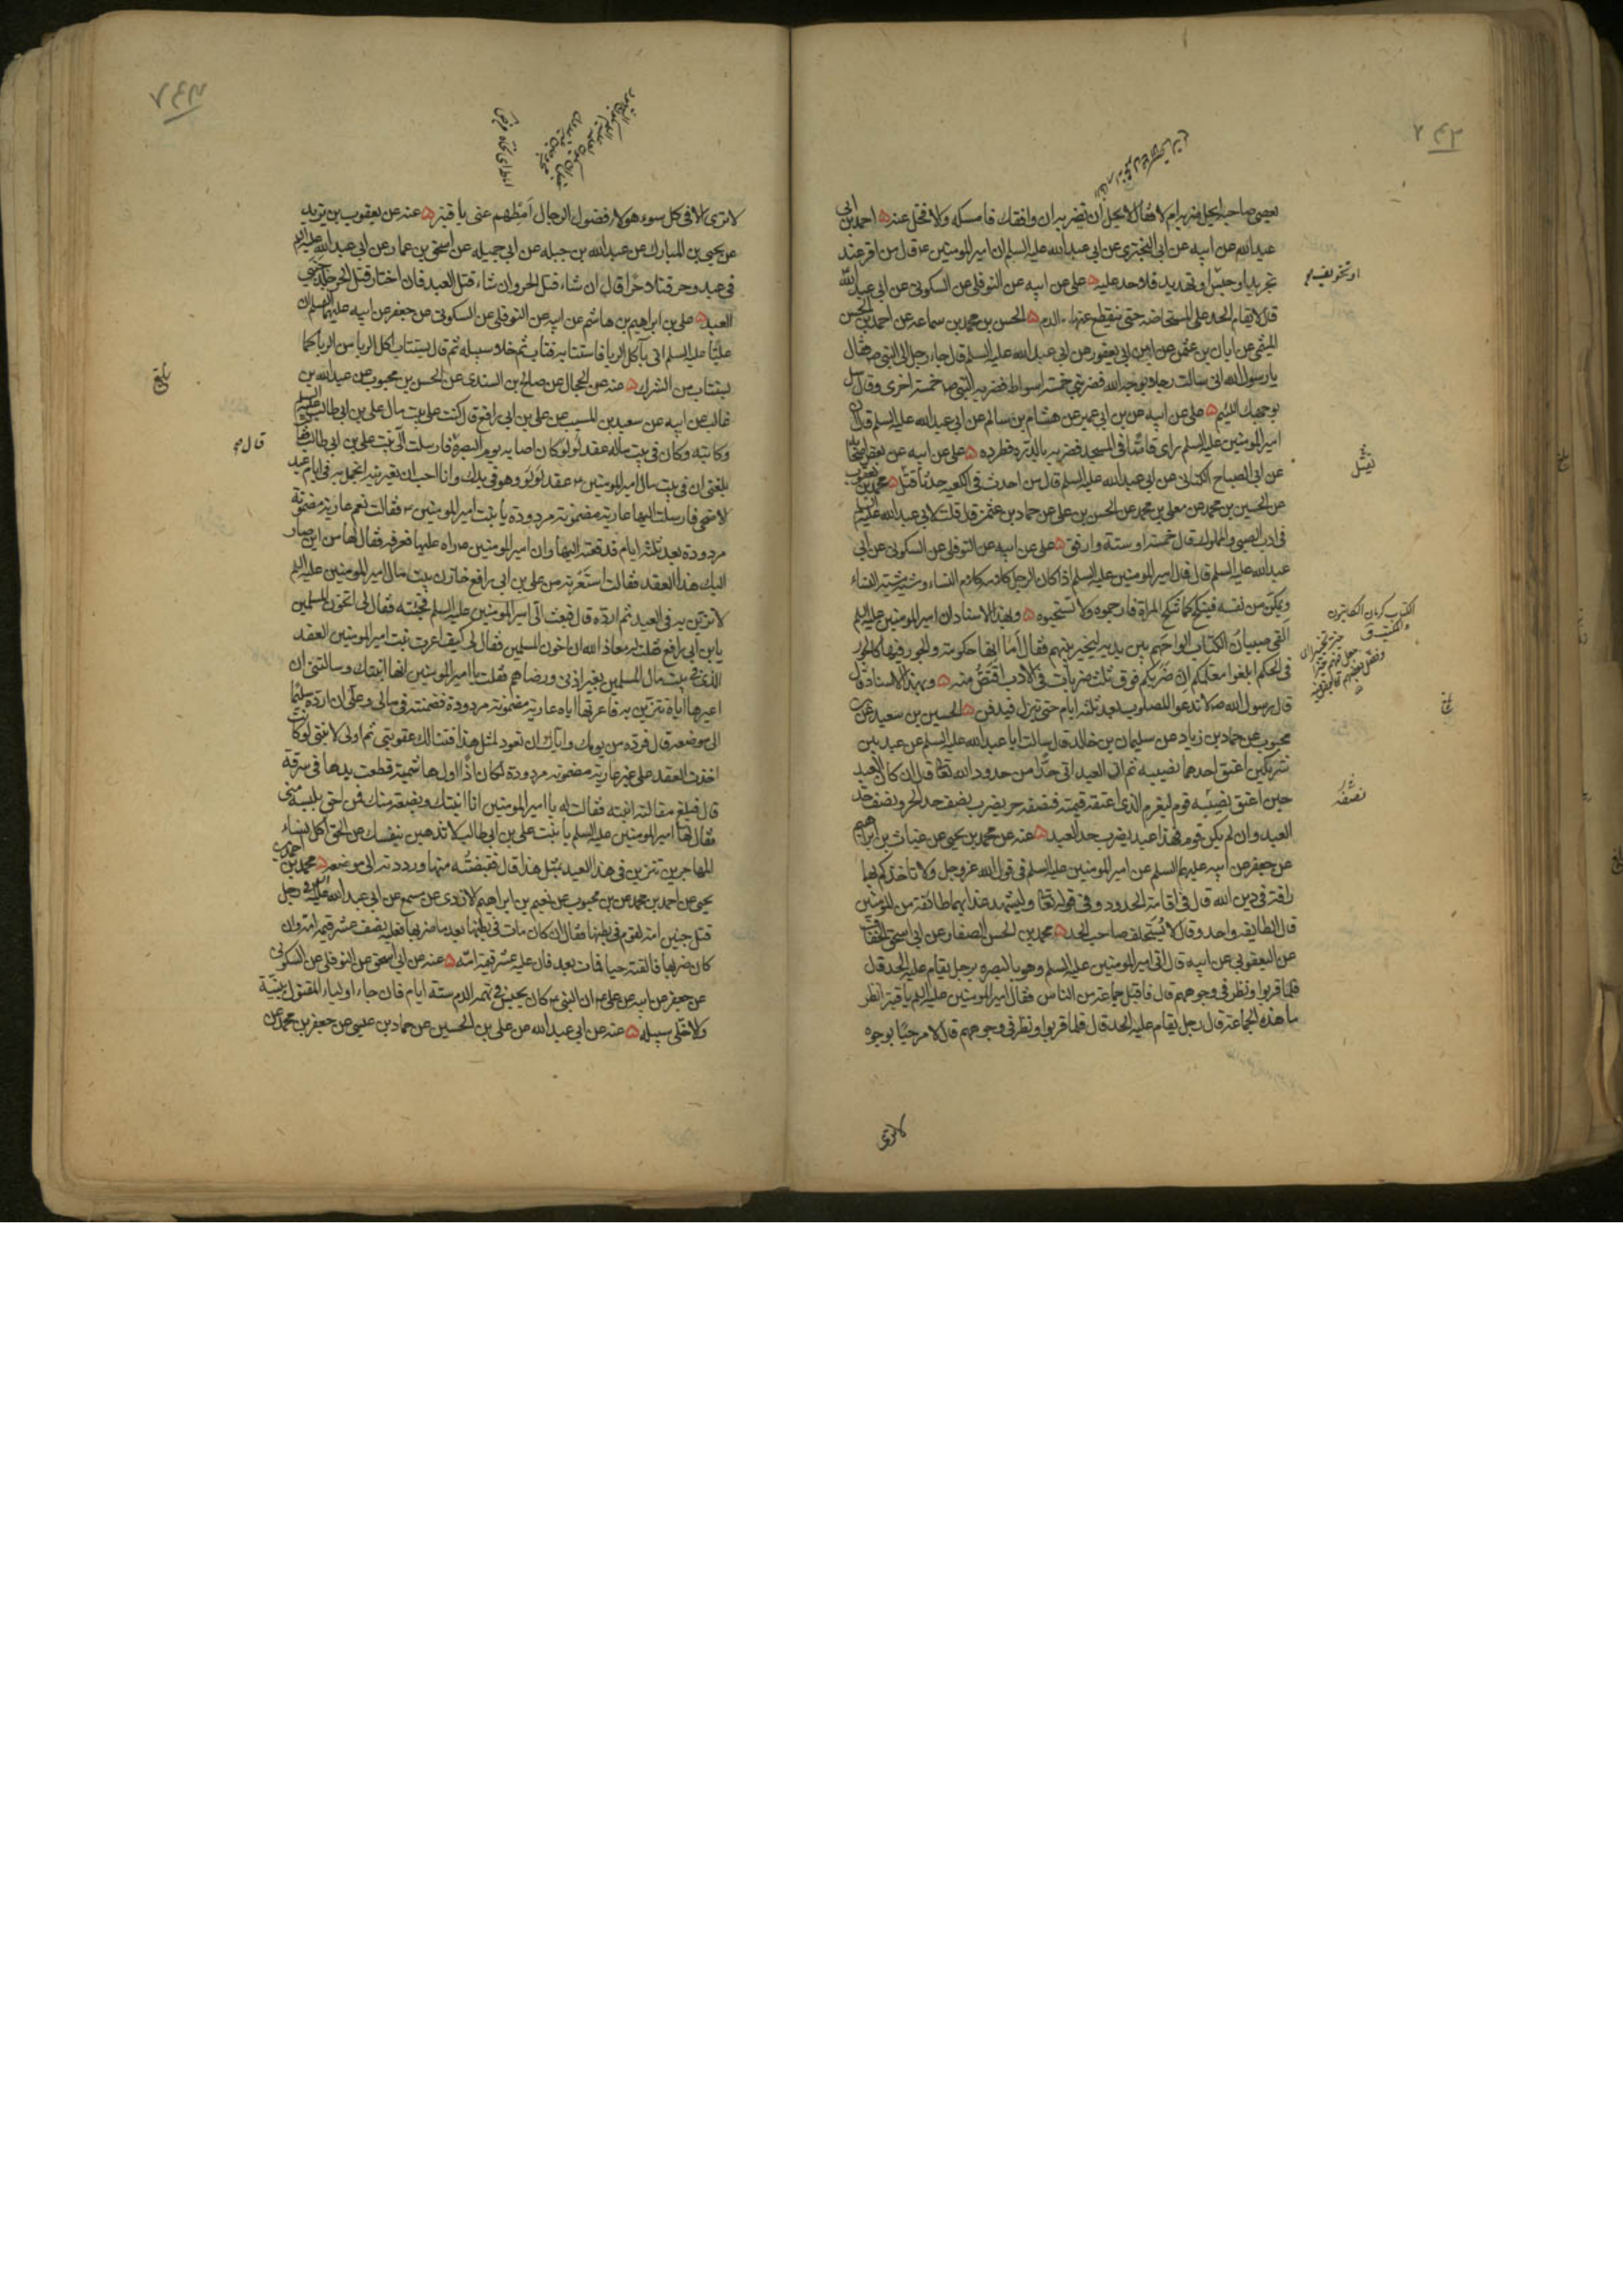 يعصى صاحبه ايحل ضربه ام لا فقال لا يحل ان تضربه ان وافقك فامسكه والا فخل عنه احمد بن ابى
عبد الله عن ابيه عن ابى البخترى عن ابى عبد الله عليه السلم ان امير المومنين ع قال من اقر عند
تجريد او حبس او تهديد فلا حد عليه على عن ابيه عن النوفلى عن السكونى عن ابى عبد الله
قال لا يقام الحد على المستحاضه حتى ينقطع عنها الدم الحسن بن محمد بن سماعه عن احمد بن الحسن
الميثمى عن ابان بن عثمن عن ابن ابى يعفور عن ابى عبد الله عليه السلم قال جاء رجل الى النبى ص فقال
يا رسول الله انى سالت رجلا بوجه الله فضربنى خمسة اسواط فضربه النبى ص خمسة اخرى وقال سل
بوجهك اللئيم على عن ابيه عن بن ابى عمير عن هشام بن سالم عن ابى عبد الله عليه السلم قال ان
امير المومنين عليه السلم راى قاصا فى المسجد فضربه بالدره فطرده على عن ابيه عن بعض اصحابه
عن ابى الصباح الكنانى عن ابى عبد الله عليه السلم قال من احدث فى الكعبه حدثا قتل محمد بن يعقوب
عن الحسين بن محمد عن معلى بن محمد عن الحسن بن على عن حماد بن عثمن قال قلت لابى عبد الله عليه السلم
فى ادب الصبى والمملوك قال خمسة او ستة وارفق على عن ابيه عن النوفلى عن السكونى عن ابى
عبد الله عليه السلم قال قال امير المومنين عليه السلم اذا كان الرجل كلامه كلام النساء ومشيته مشية النساء
ويمكن من نفسه فينكح كما تنكح المراة فارجموه ولا تستحيوه وبهذا الاسناد ان امير المومنين عليه السلم
القى صبيان الكتاب الواحهم بين يديه ليخير بينهم فقال اما انها حكومة والجور فيها كالجور
فى الحكم ابلغوا معلمكم ان ضربكم فوق ثلث ضربات فى الادب اقتص منه وبهذا الاسناد قال
قال رسول الله ص لا تدعوا المصلوب بعد ثلثه ايام حتى ينزل فيدفن الحسين بن سعيد عن
محبوب عن حماد بن زياد عن سليمان بن خالد قال سالت ابا عبد الله عليه السلم عن عبد بين
شريكين اعتق احدهما نصيبه ثم ان العبد اتى حدا من حدود الله تعالى قال ان كان العبد
حين اعتق نصيبه قوم ليغرم الذى اعتقه قيمته فنصفه حر يضرب نصف حد الحر ونصف حد
العبد وان لم يكن قوم فهذا عبد يضرب حد العبد عنه عن محمد بن يحيى عن غياث بن ابراهيم
عن جعفر عن ابيه عليهما السلم عن امير المومنين عليه السلم فى قول الله عز وجل ولا تاخذكم بهما
رافة فى دين الله قال فى اقامة الحدود وفى قوله تعالى وليشهد عذابهما طائفة من المومنين
قال الطايفه واحد وقال لا يستحلف صاحب الحد محمد بن الحسن الصفار عن ابى اسحق الخفاف
عن اليعقوبى عن ابيه قال اتى امير المومنين عليه السلم وهو بالبصره برجل يقام عليه الحد قال
فلما قربوا ونظر فى وجوههم قال فاقبل جماعة من الناس فقال امير المومنين عليه السلم يا قنبر انظر
ما هذه الجماعة قال رجل يقام عليه الحد قال فلما قربوا ونظر فى وجوههم قال لا مرحبا بوجوه
لا ترى
او تخويف
نصفه
لا ترى الا فى كل سوء هولاء فضول الرجال امطهم عنى يا قنبر عنه عن يعقوب بن يزيد
عن يحيى بن المبارك عن عبد الله بن جبله عن ابى جميله عن اسحق بن عمار عن ابى عبد الله عليه السلم
فى عبد وحر قتلا حرا قال ان شاء قتل الحر وان شاء قتل العبد فان اختار قتل الحر جلد جنبى
العبد على بن ابراهيم بن هاشم عن ابيه عن النوفلى عن السكونى عن جعفر عن ابيه عليهما السلم ان
عليا عليه السلم اتى بآكل الربا فاستتابه فتاب ثم خلا سبيله ثم قال يستتاب اكل الربا من الربا كما
يستتاب من الشرك عنه عن الحجال عن صالح بن السندى عن الحسن بن محبوب عن عبد الله بن
غالب عن ابيه عن سعيد بن المسيب عن على بن ابى رافع قال كنت على بيت مال على بن ابى طالب عليه السلم
وكاتبه وكان فى بيت ماله عقد لؤلؤ كان اصابه يوم البصرة فارسلت الى بنت على بن ابى طالب فقالت
بلغنى ان فى بيت مال امير المومنين ع عقد لؤلؤ وهو فى يدك وانا احب ان تعيرنيه اتجمل به فى ايام عيد
الاضحى فارسلت اليها عارية مضمونة مردودة يا بنت امير المومنين ع فقالت نعم عارية مضمونة
مردودة بعد ثلثه ايام فدفعته اليها وان امير المومنين ص راه عليها فعرفه فقال لها من اين صار
اليك هذا العقد فقالت استعرته من على بن ابى رافع خازن بيت مال امير المومنين عليه السلم
لاتزين به فى العيد ثم ارده قال فبعث الى امير المومنين عليه السلم فجئته فقال لى اتخون المسلمين
يا بن ابى رافع فقلت له معاذ الله ان اخون المسلمين فقال لى كيف اعرت بنت امير المومنين العقد
الذى فى بيت مال المسلمين بغير اذنى ورضاهم فقلت يا امير المومنين انها ابنتك وسالتنى ان
اعيرها اياه تتزين به فاعرتها اياه عارية مضمونة مردودة فضمنته فى مالى وعلى ان ارده سليما
الى موضعه قال فرده من يومك واياك ان تعود لمثل هذا فتنالك عقوبتى ثم اولى لابنتى لو كانت
اخذت العقد على غير عارية مضمونة مردودة لكان اذا اول هاشمية قطعت يدها فى سرقة
قال فبلغ مقالته ابنته فقالت له يا امير المومنين انا ابنتك وبضعة منك فمن احق بلبسه منى
فقال لها امير المومنين عليه السلم يا بنت على بن ابى طالب لا تذهبن بنفسك عن الحق اكل نساء
المهاجرين تتزين فى هذا العيد بمثل هذا قال فقبضته منها ورددته الى موضعه محمد بن
يحيى عن احمد بن محمد عن بن محبوب عن نعيم بن ابراهيم الازدى عن مسمع عن ابى عبد الله عليه السلم فى رجل
قتل جنين امة لقوم فى بطنها فقال ان كان مات فى بطنها بعد ما ضربها فعليه نصف عشر قيمة امه وان
كان ضربها فالقته حيا فمات بعد فان عليه عشر قيمة امه عنه عن ابى اسحق عن النوفلى عن السكونى
عن جعفر عن ابيه عن على ع ان النبى ص كان يحبس فى تهمة الدم ستة ايام فان جاء اولياء المقتول ببينة
والا خلى سبيله عنه عن ابى عبد الله عن على بن الحسين عن حماد بن عيسى عن جعفر بن محمد عن
بلغ
قال